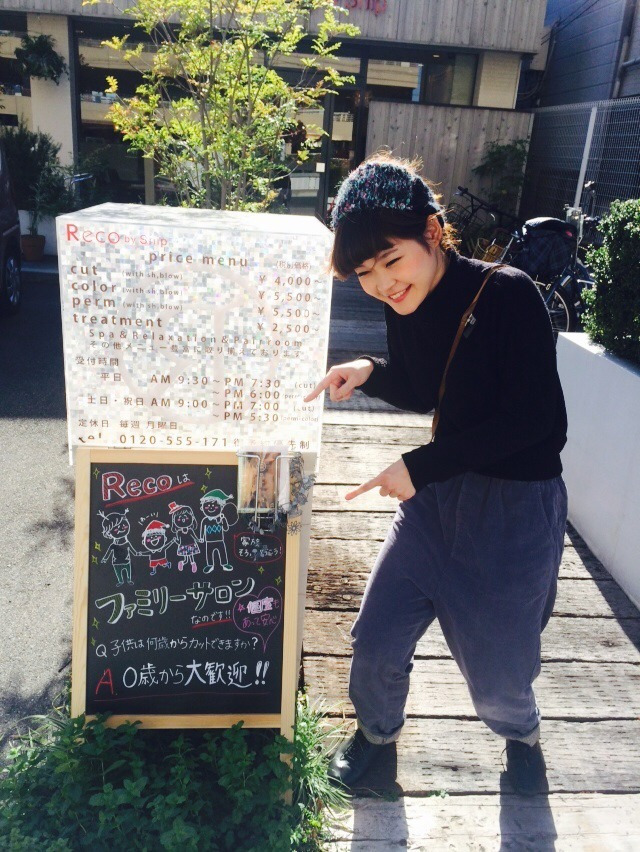 Reco by Snip
price menu (税込価格)
cut (with sh.blow) ¥ 4,000~
color (with sh.blow) ¥ 5,500~
perm (with sh.blow) ¥ 5,500~
treatment ¥ 2,500~
Spa & Relaxation & Hairroom
その他メニュー豊富に取り揃えております
受付時間
平日 AM 9:30 ~ PM 7:30 (cut)
PM 6:00
土日・祝日 AM 9:00 ~ PM 7:00 (cut)
PM 5:30
定休日 毎週 月曜日
tel. 0120-555-171
Recoは
家族で
ファミリーサロン
なのです!!
個室も
あって安心
Q 子供は何歳からカットできますか?
A. 0歳から大歓迎!!